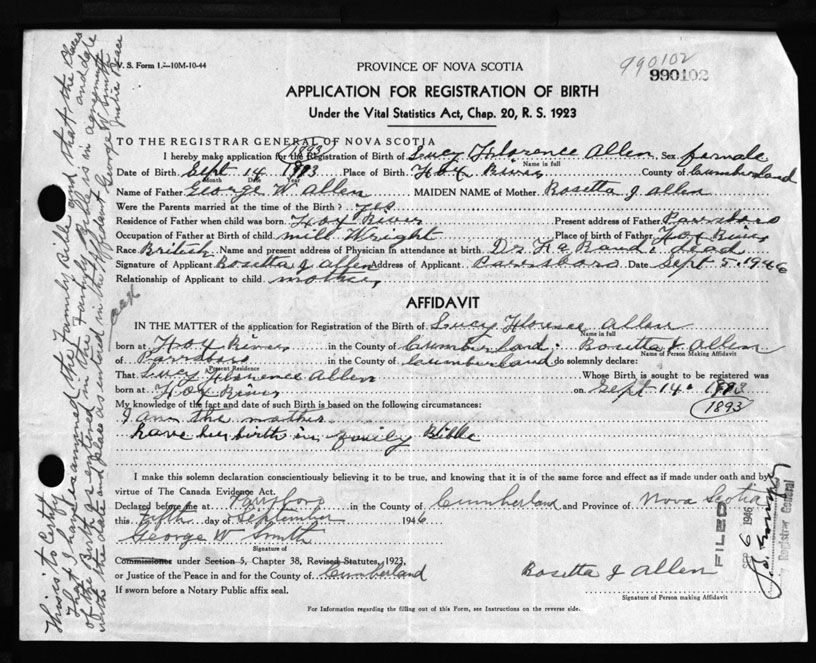 V. S. Form 1.—10M-10-44
PROVINCE OF NOVA SCOTIA
990102
990102
APPLICATION FOR REGISTRATION OF BIRTH
Under the Vital Statistics Act, Chap. 20, R. S. 1923
TO THE REGISTRAR GENERAL OF NOVA SCOTIA
1893
I hereby make application for the Registration of Birth of Lucy Florence Allen Sex female
Name in full
Date of Birth Sept 14 1893 Place of Birth Fox River County of Cumberland
Month Date Year
Name of Father George W. Allen MAIDEN NAME of Mother Rosetta J Allen
Were the Parents married at the time of the Birth? yes
Residence of Father when child was born Fox River Present address of Father Parrsboro
Occupation of Father at Birth of child mill Wright Place of birth of Father Fox River
Race British Name and present address of Physician in attendance at birth Dr F a Rand. dead
Signature of Applicant Rosetta J Allen Address of Applicant Parrsboro Date Sept 5. 1946
Relationship of Applicant to child mother
AFFIDAVIT
IN THE MATTER of the application for Registration of the Birth of Lucy Florence Allen
Name in full
born at Fox River in the County of Cumberland: Rosetta J Allen
Name of Person Making Affidavit
of Parrsboro in the County of Cumberland do solemnly declare:
Present Residence
That Lucy Florence Allen Whose Birth is sought to be registered was
born at Fox River on Sept 14. 1893
1893
My knowledge of the fact and date of such Birth is based on the following circumstances:
I am the mother
have her births in family Bible
I make this solemn declaration conscientiously believing it to be true, and knowing that it is of the same force and effect as if made under oath and by
virtue of The Canada Evidence Act.
Declared before me at Parrsboro in the County of Cumberland and Province of Nova Scotia
this fifth day of September 1946
George W Smith
Signature of
Commissioner under Section 5, Chapter 38, Revised Statutes, 1923,
or Justice of the Peace in and for the County of Cumberland
Rosetta J Allen
If sworn before a Notary Public affix seal.
Signature of Person making Affidavit
For Information regarding the filling out of this Form, see Instructions on the reverse side.
This is to Certify
That I have examined the Family Bible and that the place and date
of the Birth as entered in the Family Bible is in agreement
with the date and place as entered in the Affidavit George W Smith
Justice Peace
FILED
SEP 6 1946
Registrar General